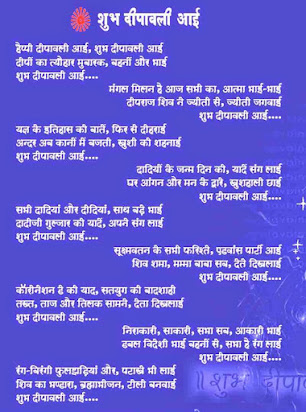 शुभ दीपावली आई
हैप्पी दीपावली आई, शुभ दीपावली आई
दीपों का त्यौहार मुबारक, बहनों और भाई
शुभ दीपावली आई....
मंगल मिलन है आज सभी का, आत्मा भाई-भाई
दीपराज शिव ने ज्यौती से, ज्यौती जगवाई
शुभ दीपावली आई....
यज्ञ के इतिहास की बातें, फिर से दौहराई
अन्दर अब कानों में बजती, खुशी की शहनाई
शुभ दीपावली आई....
दादियों के जन्म दिन की, यादें संग लाई
घर आंगन और मन के द्वारे, खुशहाली छाई
शुभ दीपावली आई....
सभी दादियां और दीदियां, साथ बड़े भाई
दादीजी गुल्जार की यादें, अपने संग लाई
शुभ दीपावली आई....
सूक्ष्मवतन के सभी फरिश्ते, एडवांस पार्टी आई
शिव शमा, मम्मा बाबा सब, देते दिखलाई
शुभ दीपावली आई....
कॉरीनेशन डे की याद, सतयुग की बादशाही
तख्त, ताज और तिलक सामने, देता दिखलाई
शुभ दीपावली आई....
निराकारी, साकारी, सभा सब, आकारी भाई
डबल विदेशी भाई बहनों से, सभा है रंग लाई
शुभ दीपावली आई....
रंग-बिरंगी फुलझड़ियां और, पटाखे भी लाई
शिव का भण्डारा, ब्रह्माभोजन, टोली बनवाई
शुभ दीपावली आई....
॥ शुभ दीपा